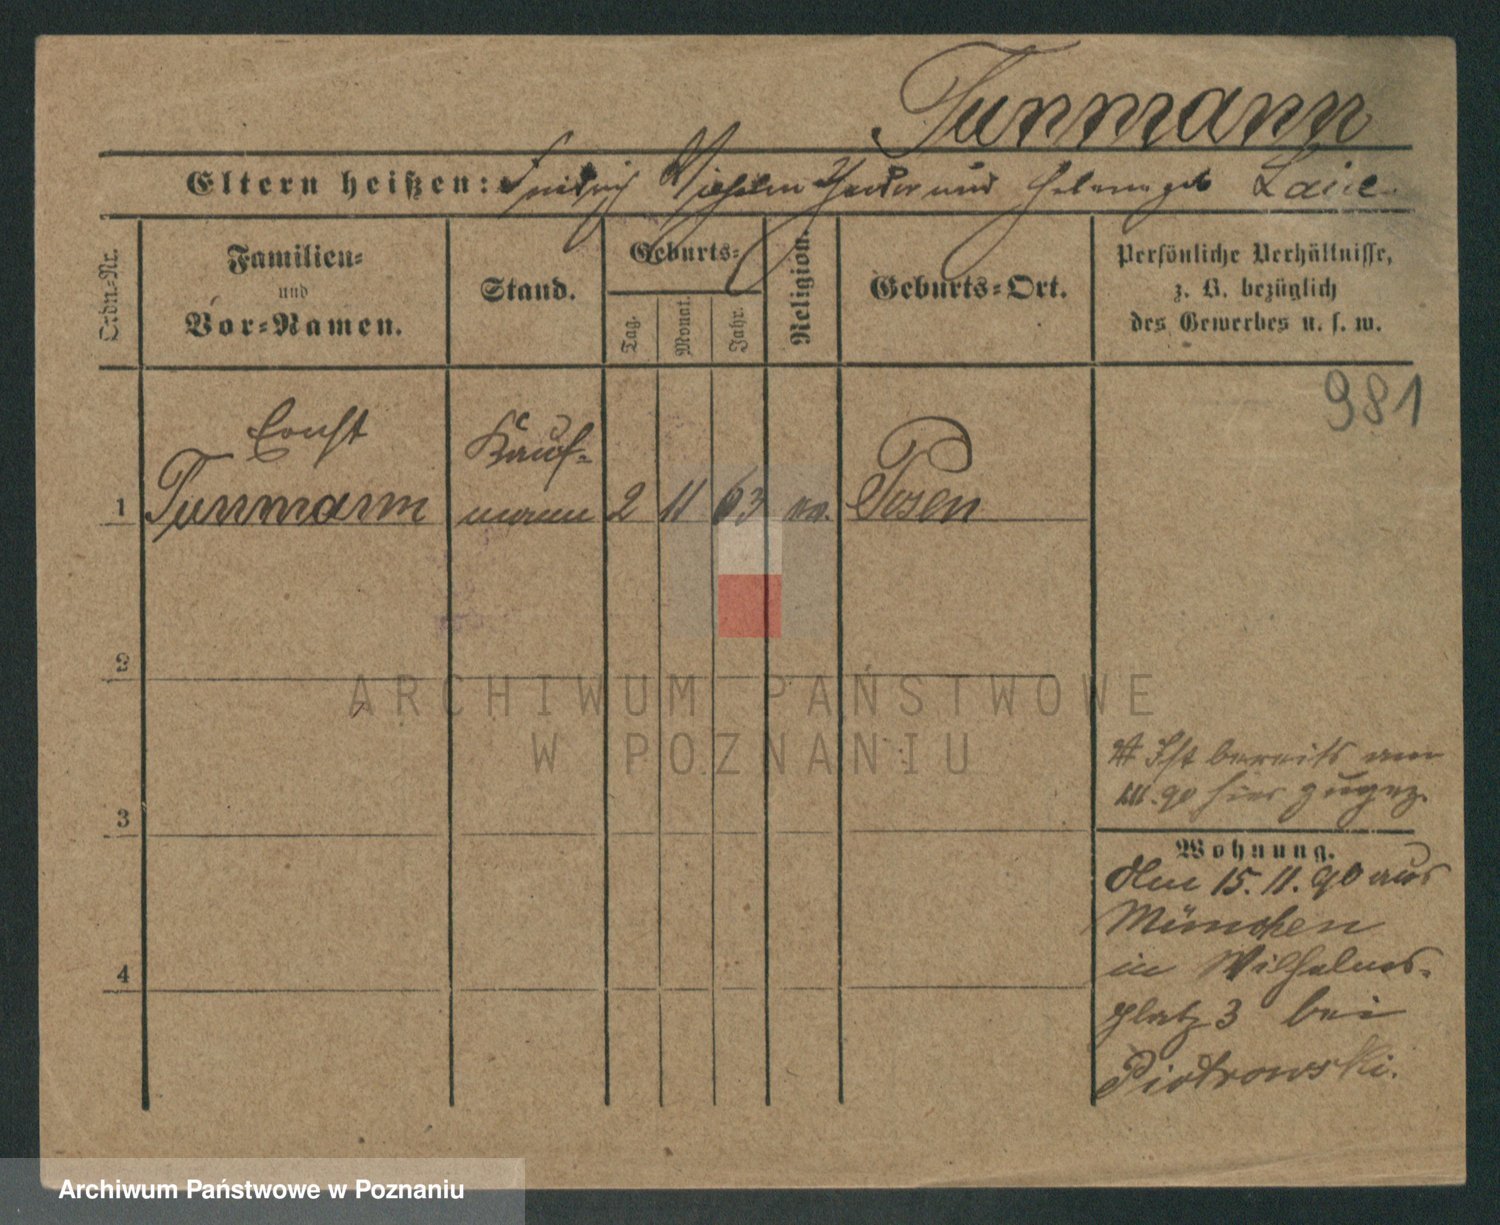 Tunmann
Eltern heißen: Friedrich Wilhelm Theodor und Helene geb
Ordn.-Nr.
Familien-
und
Vor-Namen.
Stand.
Geburts-
Tag.
Monat.
Jahr.
Religion.
Geburts-Ort.
Persönliche Verhältnisse,
z. B. bezüglich
des Gewerbes u. s. w.
981
Ernst
Kauf-
1 Tunmann mann 2 11 63 ev. Posen
2
3
4
Ist bereits am
90 hier zugez.
Wohnung.
Am 15. 11. 90 aus
München
in Wilhelms-
platz 3 bei
Piotrowski.
ARCHIWUM PAŃSTWOWE
W POZNANIU
Archiwum Państwowe w Poznaniu